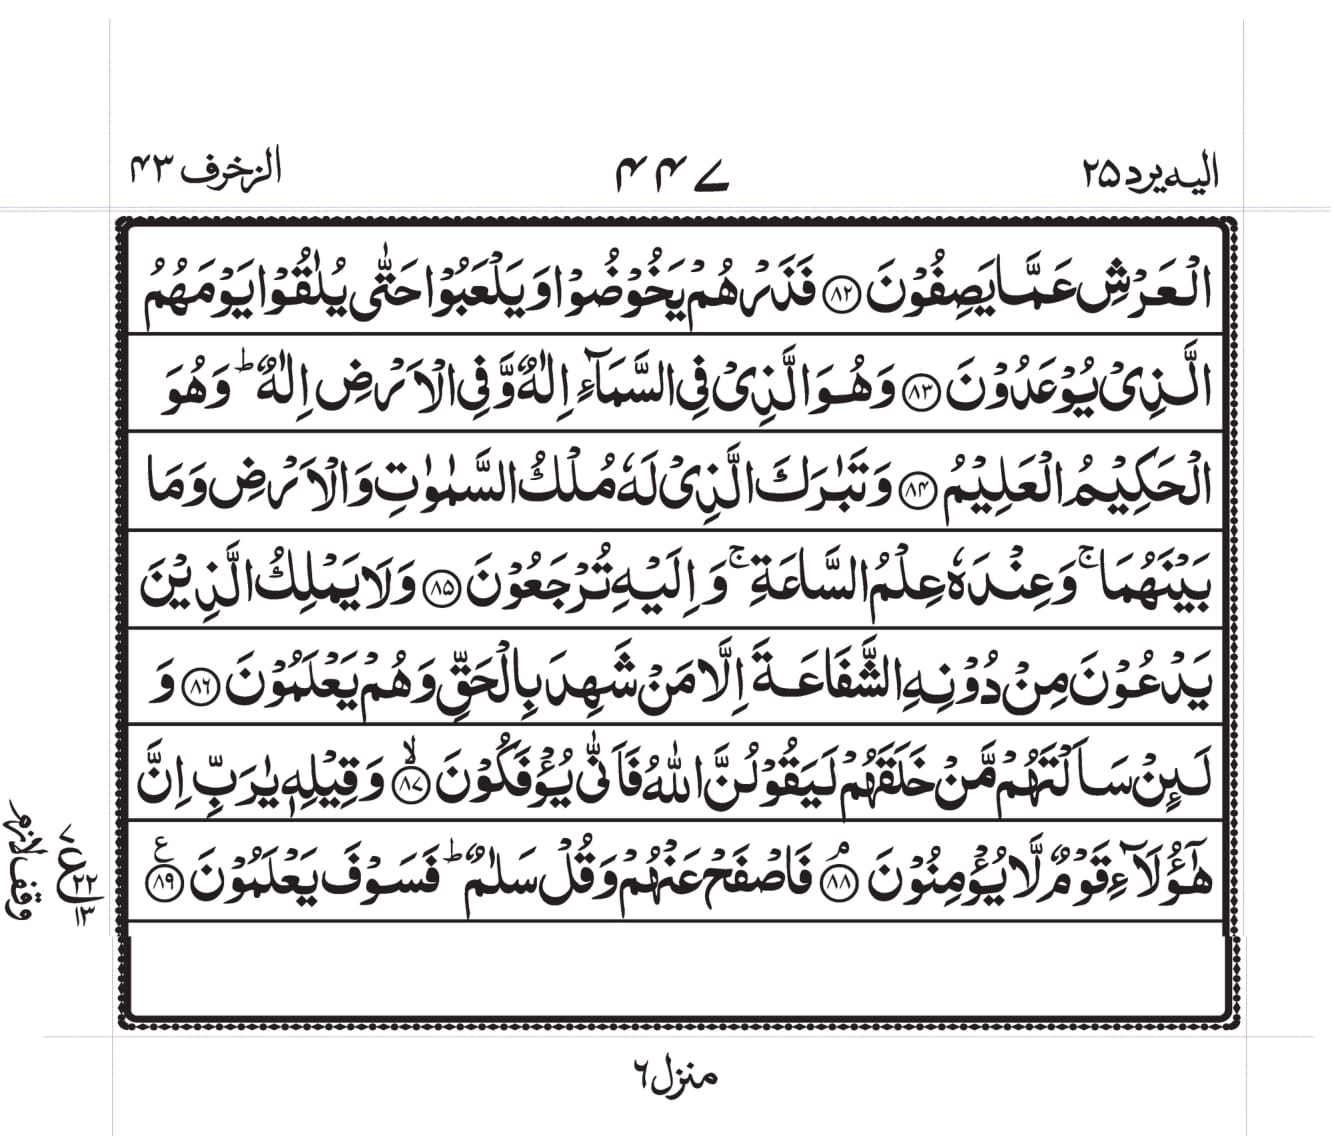 الیه یرد ۲۵
۴۴۷
الزخرف ۴۳
الْعَرْشِ عَمَّا یَصِفُوْنَ ﴿۸۲﴾ فَذَرْهُمْ یَخُوْضُوْا وَ یَلْعَبُوْا حَتّٰی یُلٰقُوْا یَوْمَهُمُ
الَّذِیْ یُوْعَدُوْنَ ﴿۸۳﴾ وَ هُوَ الَّذِیْ فِی السَّمَآءِ اِلٰهٌ وَّ فِی الْاَرْضِ اِلٰهٌ ؕ وَ هُوَ
الْحَكِیْمُ الْعَلِیْمُ ﴿۸۴﴾ وَ تَبٰرَكَ الَّذِیْ لَهٗ مُلْكُ السَّمٰوٰتِ وَ الْاَرْضِ وَ مَا
بَیْنَهُمَا ۚ وَ عِنْدَهٗ عِلْمُ السَّاعَةِ ۚ وَ اِلَیْهِ تُرْجَعُوْنَ ﴿۸۵﴾ وَ لَا یَمْلِكُ الَّذِیْنَ
یَدْعُوْنَ مِنْ دُوْنِهِ الشَّفَاعَةَ اِلَّا مَنْ شَهِدَ بِالْحَقِّ وَ هُمْ یَعْلَمُوْنَ ﴿۸۶﴾ وَ
لَىِٕنْ سَاَلْتَهُمْ مَّنْ خَلَقَهُمْ لَیَقُوْلُنَّ اللّٰهُ فَاَنّٰی یُؤْفَكُوْنَ ﴿۸۷﴾ۙ وَ قِیْلِهٖ یٰرَبِّ اِنَّ
هٰۤؤُلَآءِ قَوْمٌ لَّا یُؤْمِنُوْنَ ﴿۸۸﴾ۘ فَاصْفَحْ عَنْهُمْ وَ قُلْ سَلٰمٌ ؕ فَسَوْفَ یَعْلَمُوْنَ ﴿۸۹﴾ ع
۷
ع ۲۲
۱۳
وقف لازم
منزل ۶